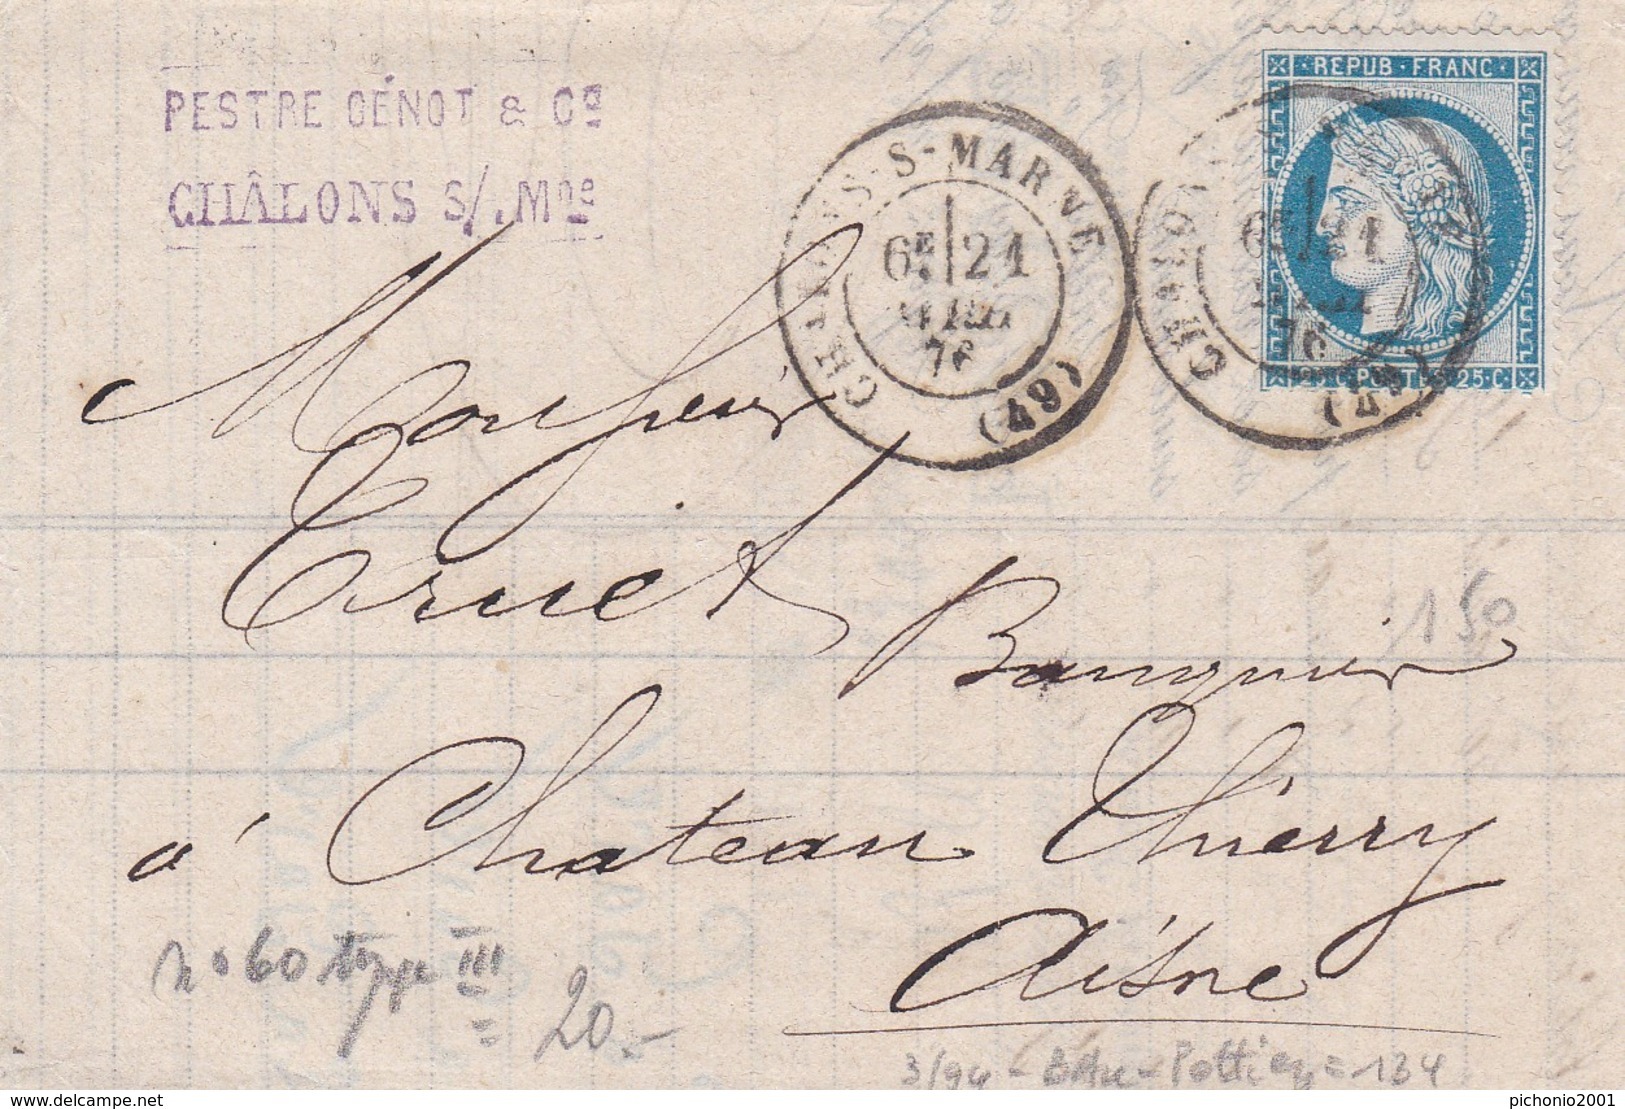 PESTRE GÉNOT & Cᵉ
CHÂLONS S/. Mⁿᵉ
CHALONS-S-MARNE
6ᴱ 21
76
(49)
REPUB · FRANC
25 · C · POSTES · 25 · C
CHALONS
6ᴱ 21
76
Monsieur
Truet Banquier
150
à Chateau Thierry
Aisne
n° 60 type III
20.-
3/94 - - Pottier = 134
delcampe.net
pichonio2001